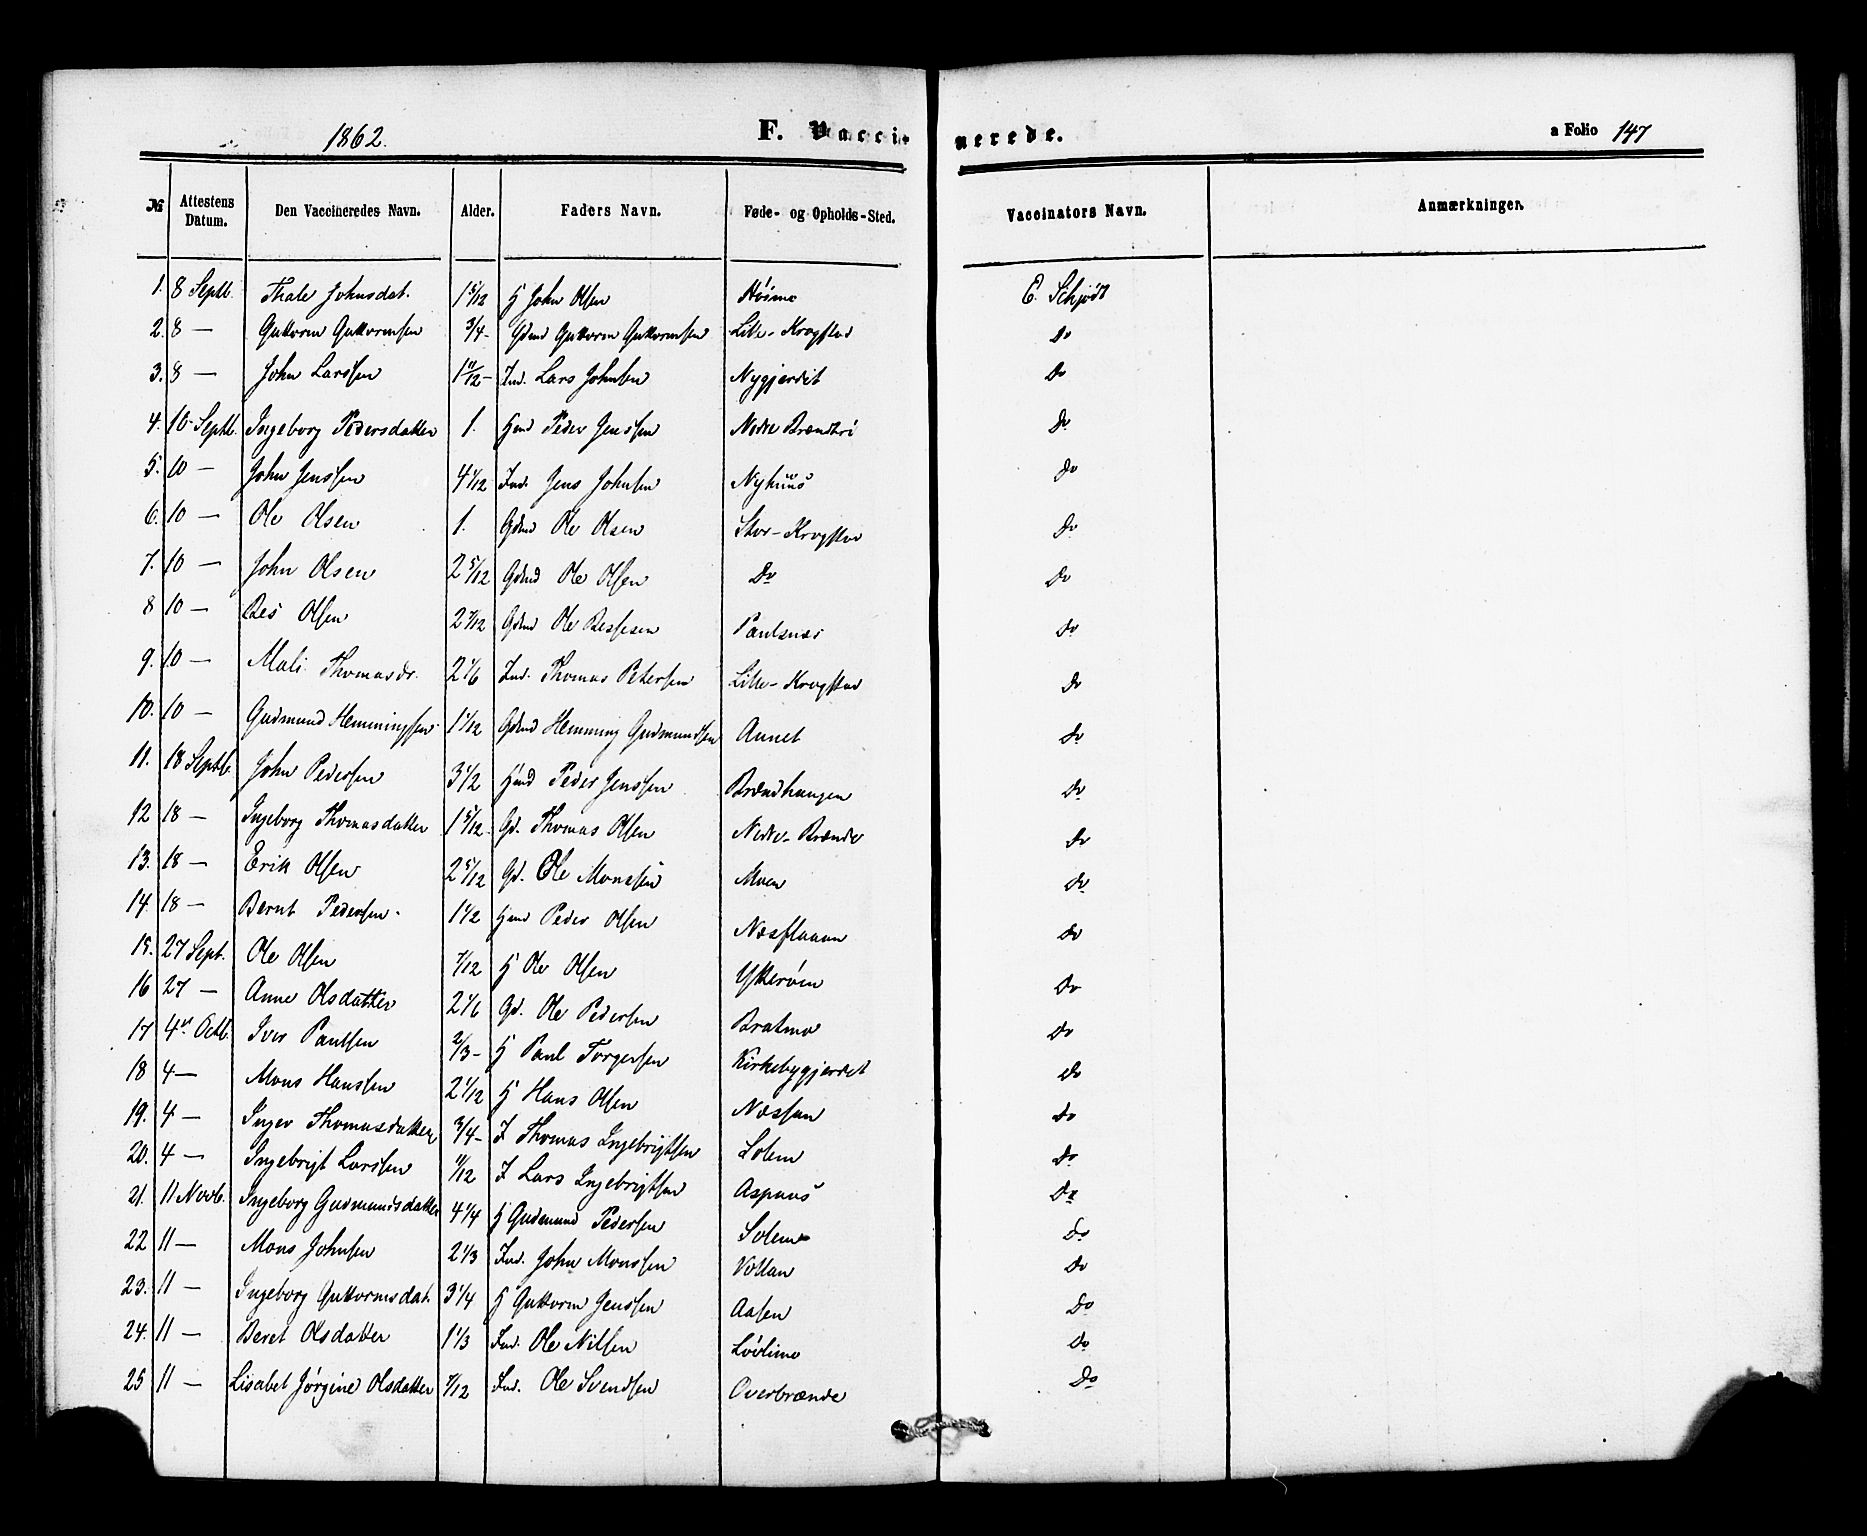 1862. F. Vaccinerede. a Folio 147
№ Attestens Datum. Den Vaccineredes Navn. Alder. Faders Navn. Føde- og Opholds-Sted. Vaccinators Navn. Anmærkninger.
1. 8 Septb. Thale Johnsdat. 1 5/12 H John Olsen Høsmo E. Schjødt
2. 8 — Guttorm Guttormsen 3/4 - Gdmd Guttorm Guttormsen Lille-Krogstad Do
3. 8 — John Larssen 1 11/12 - Ind. Lars Johnsen Nygjerdet Do
4. 10 Septb. Ingeborg Pedersdatter 1. Hmd Peder Jenssen Nedre Do
5. 10 — John Jenssen 4 1/12 Ind. Jens Johnsen Nyhuus Do
6. 10 — Ole Olsen 1. Gdmd Ole Olsen Stor-Krogstad Do
7. 10 — John Olsen 2 5/12 Gdmd Ole Olsen Do Do
8 10 — Bes Olsen 2 7/12 Gdmd Ole Bessesen Paulsnæs Do
9. 10 — Mali Thomasdr. 2 1/6 Ind. Thomas Petersen Lille-Krogstad Do
10. 10 — Gudmund Hemmingsen 1 1/12 Gdmd Hemming Gudmundsen Aunet Do
11. 18 Septb. John Pedersen 3 1/2 Hmd Peder Jenssen Brændhaugen Do
12 18 — Ingeborg Thomasdatter 1 5/12 - Gd. Thomas Olsen Nedre-Brænde Do
13. 18 — Erik Olsen 2 5/12 Gd. Ole Monssen Moen Do
14. 18 — Bernt Pedersen. 1 1/2 Hmd Peder Olsen Næsflaaen Do
15. 27 Sept. Ole Olsen 7/12 H Ole Olsen Ytterøen Do
16 27 — Anne Olsdatter 2 1/6 Gd. Ole Pedersen Bratmo Do
17 4de Octb. Iver Paulsen 2/3 - H Paul Torgersen Kirkebygjerdet Do
18 4 — Mons Hanssen 2 1/12 H Hans Olsen Næssan Do
19. 4 — Inger Thomasdatter 3/4 - I Thomas Ingebrigtsen Solem Do
20. 4 — Ingebrigt Larssen 11/12 I Lars Ingebrigtsen Aspaas Do
21. 11 Novb. Ingeborg Gudmundsdatter 4 1/4 H Gudmund Pedersen Solem Do
22 11 — Mons Johnsen 2 1/3 Ind. John Monssen Vollan Do
23. 11 — Ingeborg Guttormsdat. 3 1/4 H Guttorm Jenssen Aasen Do
24. 11 — Beret Olsdatter 1 1/3 Ind. Ole Nilsen Do
25 11 — Lisabet Jørgine Olsdatter 7/12 Ind. Ole Svendsen Overbrænde Do